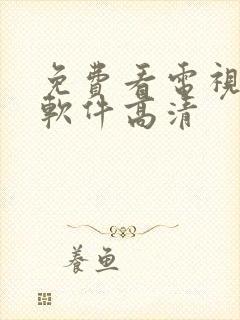 免費看電視
軟件高清
養魚